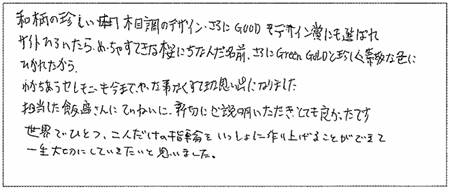 和柄の珍しい木目調のデザイン・さらにGOODデザイン賞にも選ばれ
サイトみていたら、めっちゃすてきな桜にちなんだ名前、さらにGreen Goldと珍しく素敵な色に
ひかれたから。
打ちあうセレモニーも今までやった事がなくすてきな思い出になりました
担当した飯島さんにていねいに、親切に色々説明いただき、とても良かったです
世界でひとつ、二人だけの指輪をいっしょに作り上げることができて
一生大切にしていきたいと思いました。